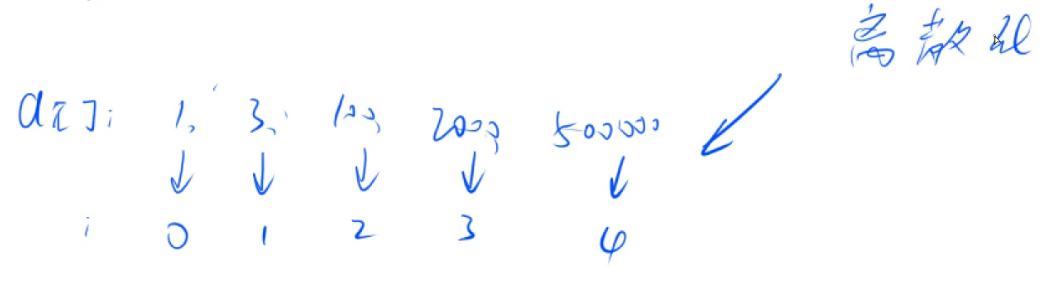 离散化
a[]: 1, 3, 100, 2000, 500000
↓ ↓ ↓ ↓ ↓
i 0 1 2 3 4